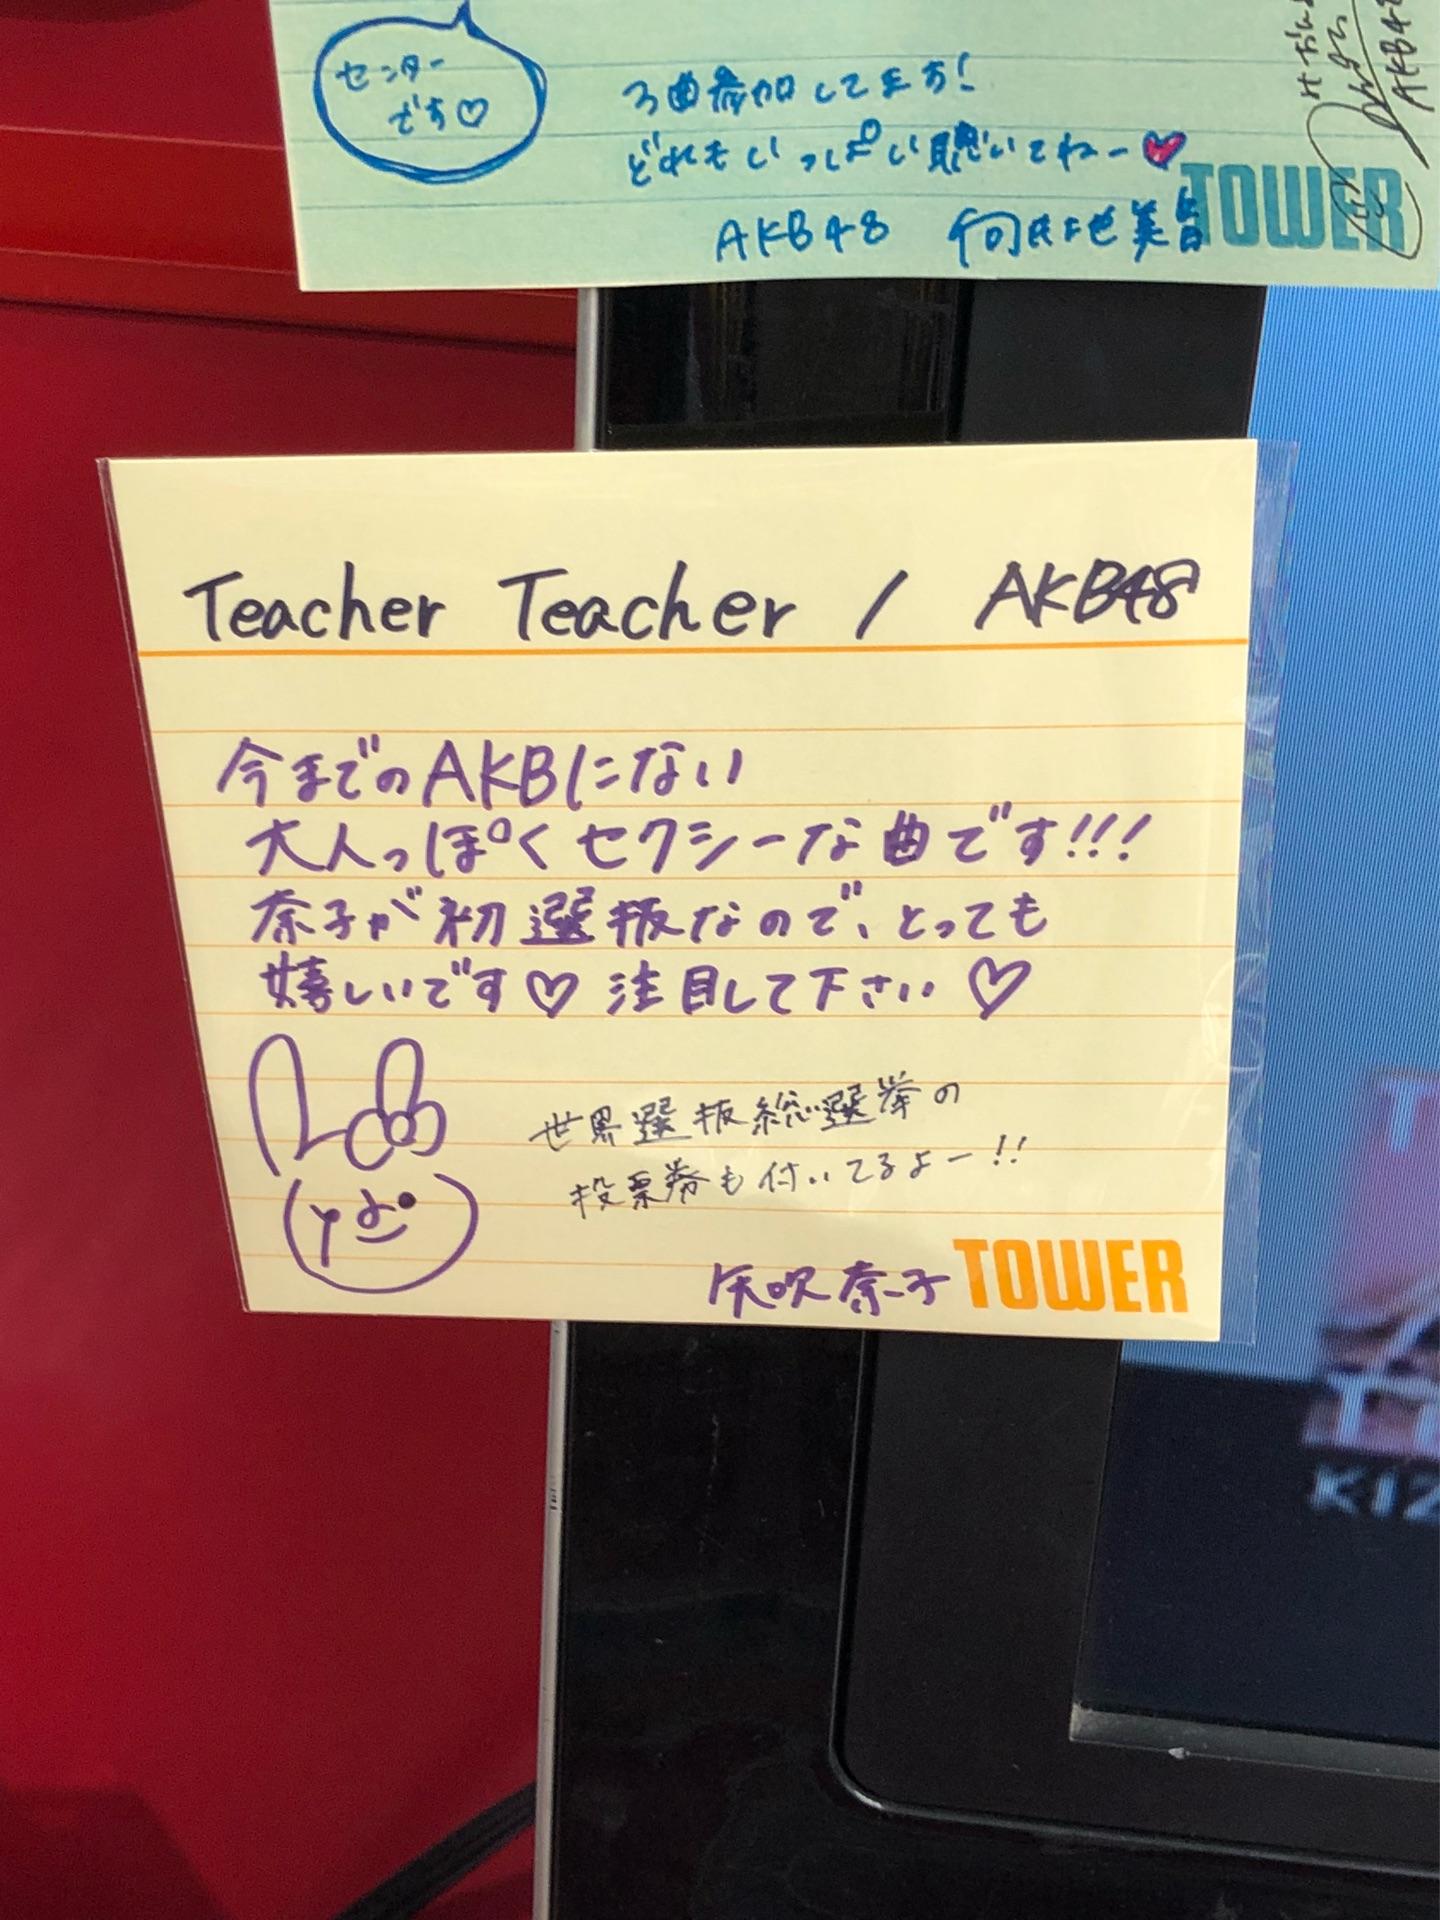 センター
です♡
3曲参加してます!
どれもいっぱい聴いてねー♥
AKB48 向井地美音
TOWER
AKB48
Teacher Teacher / AKB48
今までのAKBにない
大人っぽくセクシーな曲です!!!
奈子が初選抜なので、とっても
嬉しいです♡ 注目して下さい♡
世界選抜総選挙の
投票券も付いてるよー!!
矢吹奈子
TOWER
KIZ